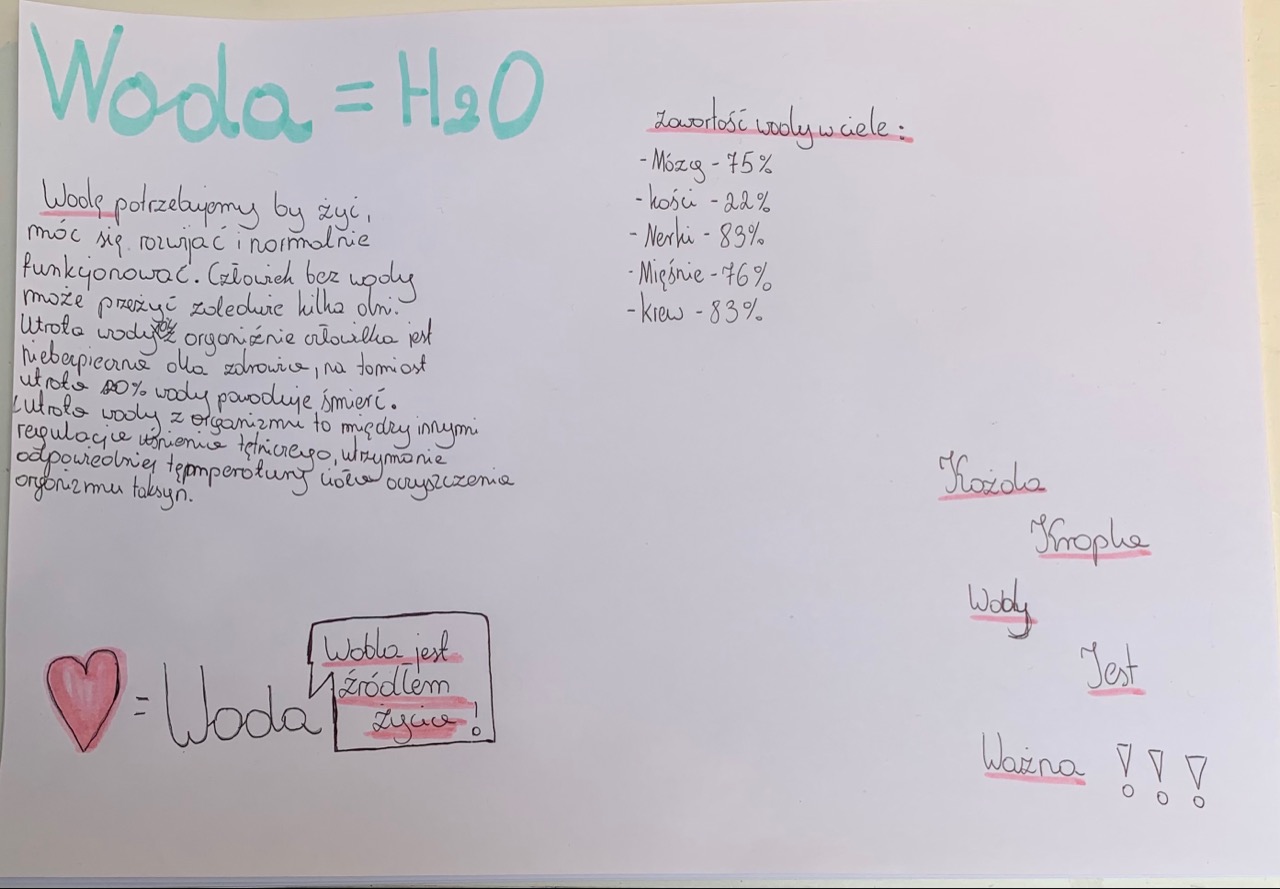 Woda = H2O
Wodę potrzebujemy by żyć,
móc się rozwijać i normalnie
funkcjonować. Człowiek bez wody
może przeżyć zaledwie kilka dni.
Utrata wody z organiźnie człowieka jest
niebezpieczna dla zdrowia, na tomiast
utrata 20% wody powoduje śmierć.
Utrata wody z organizmu to między innymi
regulacja ciśnienia tętniczego, utrzymanie
odpowiedniej temperatury ciała oczyszczenia
organizmu toksyn.
Zawartość wody w ciele:
-Mózg - 75%
-kości - 22%
-Nerki - 83%
-Mięśnie - 76%
-krew - 83%
Każda
Kropka
Wody
Jest
Ważna !!!
= Woda
Woda jest
źródłem
życia!